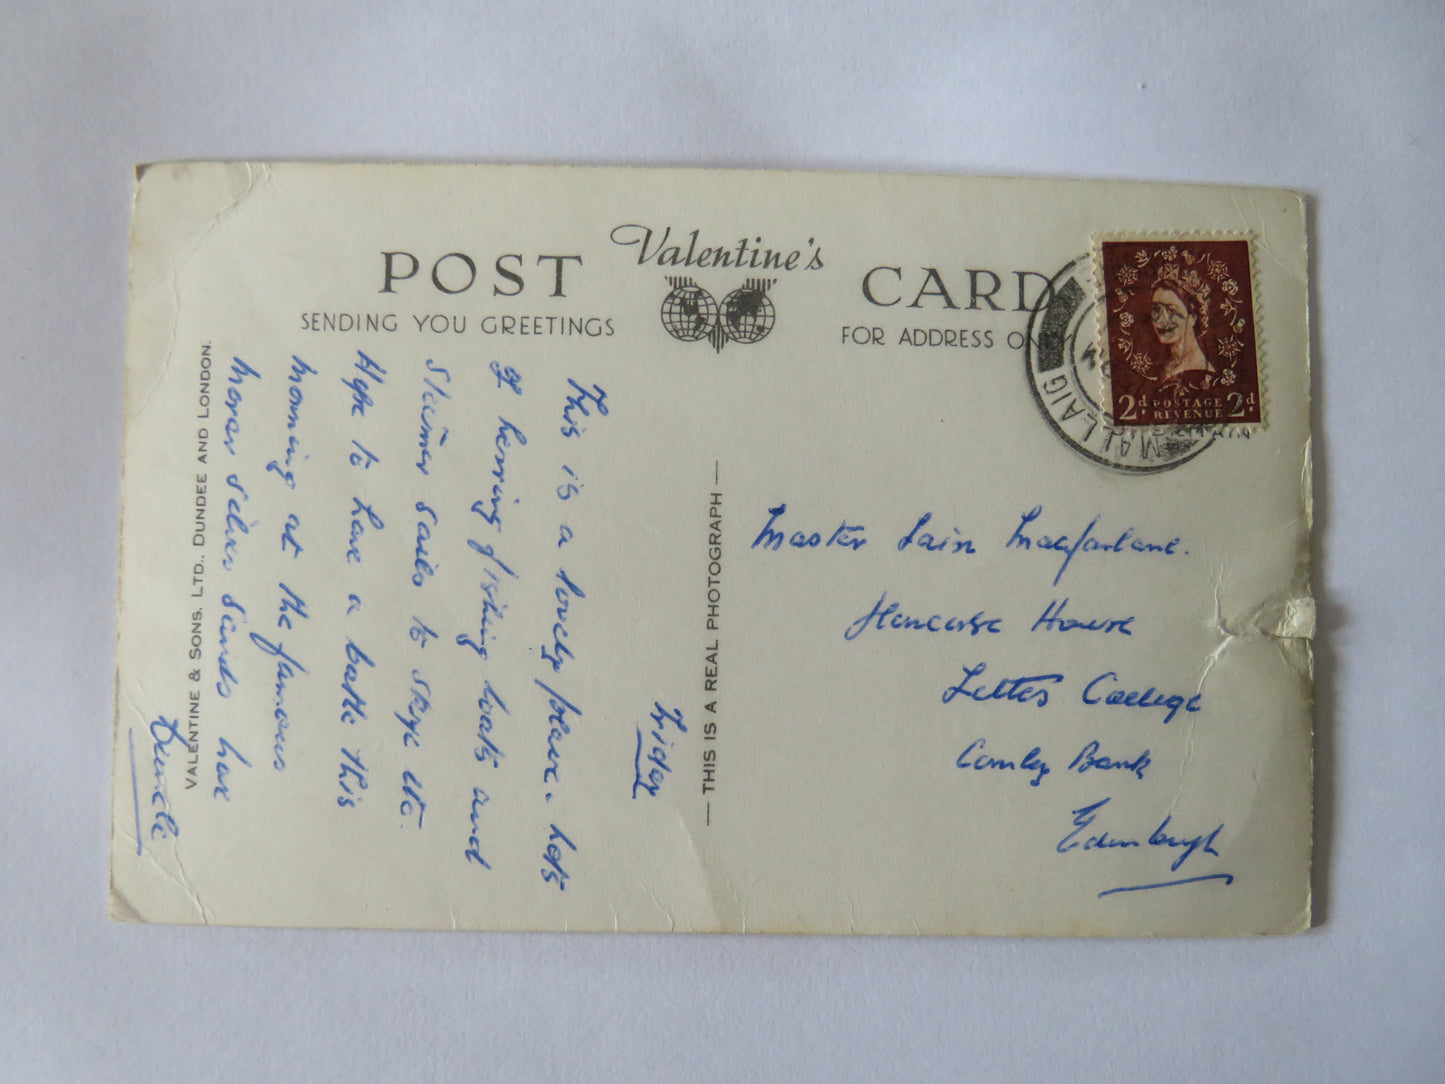 POST Valentine's CARD
SENDING YOU GREETINGS
FOR ADDRESS ON
Friday
This is a lovely place. Lots
of herring fishing boats and
Steamer sails to Skye etc.
Hope to have a bathe this
morning at the famous
Morar silver sands here
VALENTINE & SONS, LTD., DUNDEE AND LONDON.
— THIS IS A REAL PHOTOGRAPH —
MALLAIG
2d POSTAGE 2d
REVENUE
Master Iain Macfarlane.
House
Fettes College
Comley Bank
Edinburgh